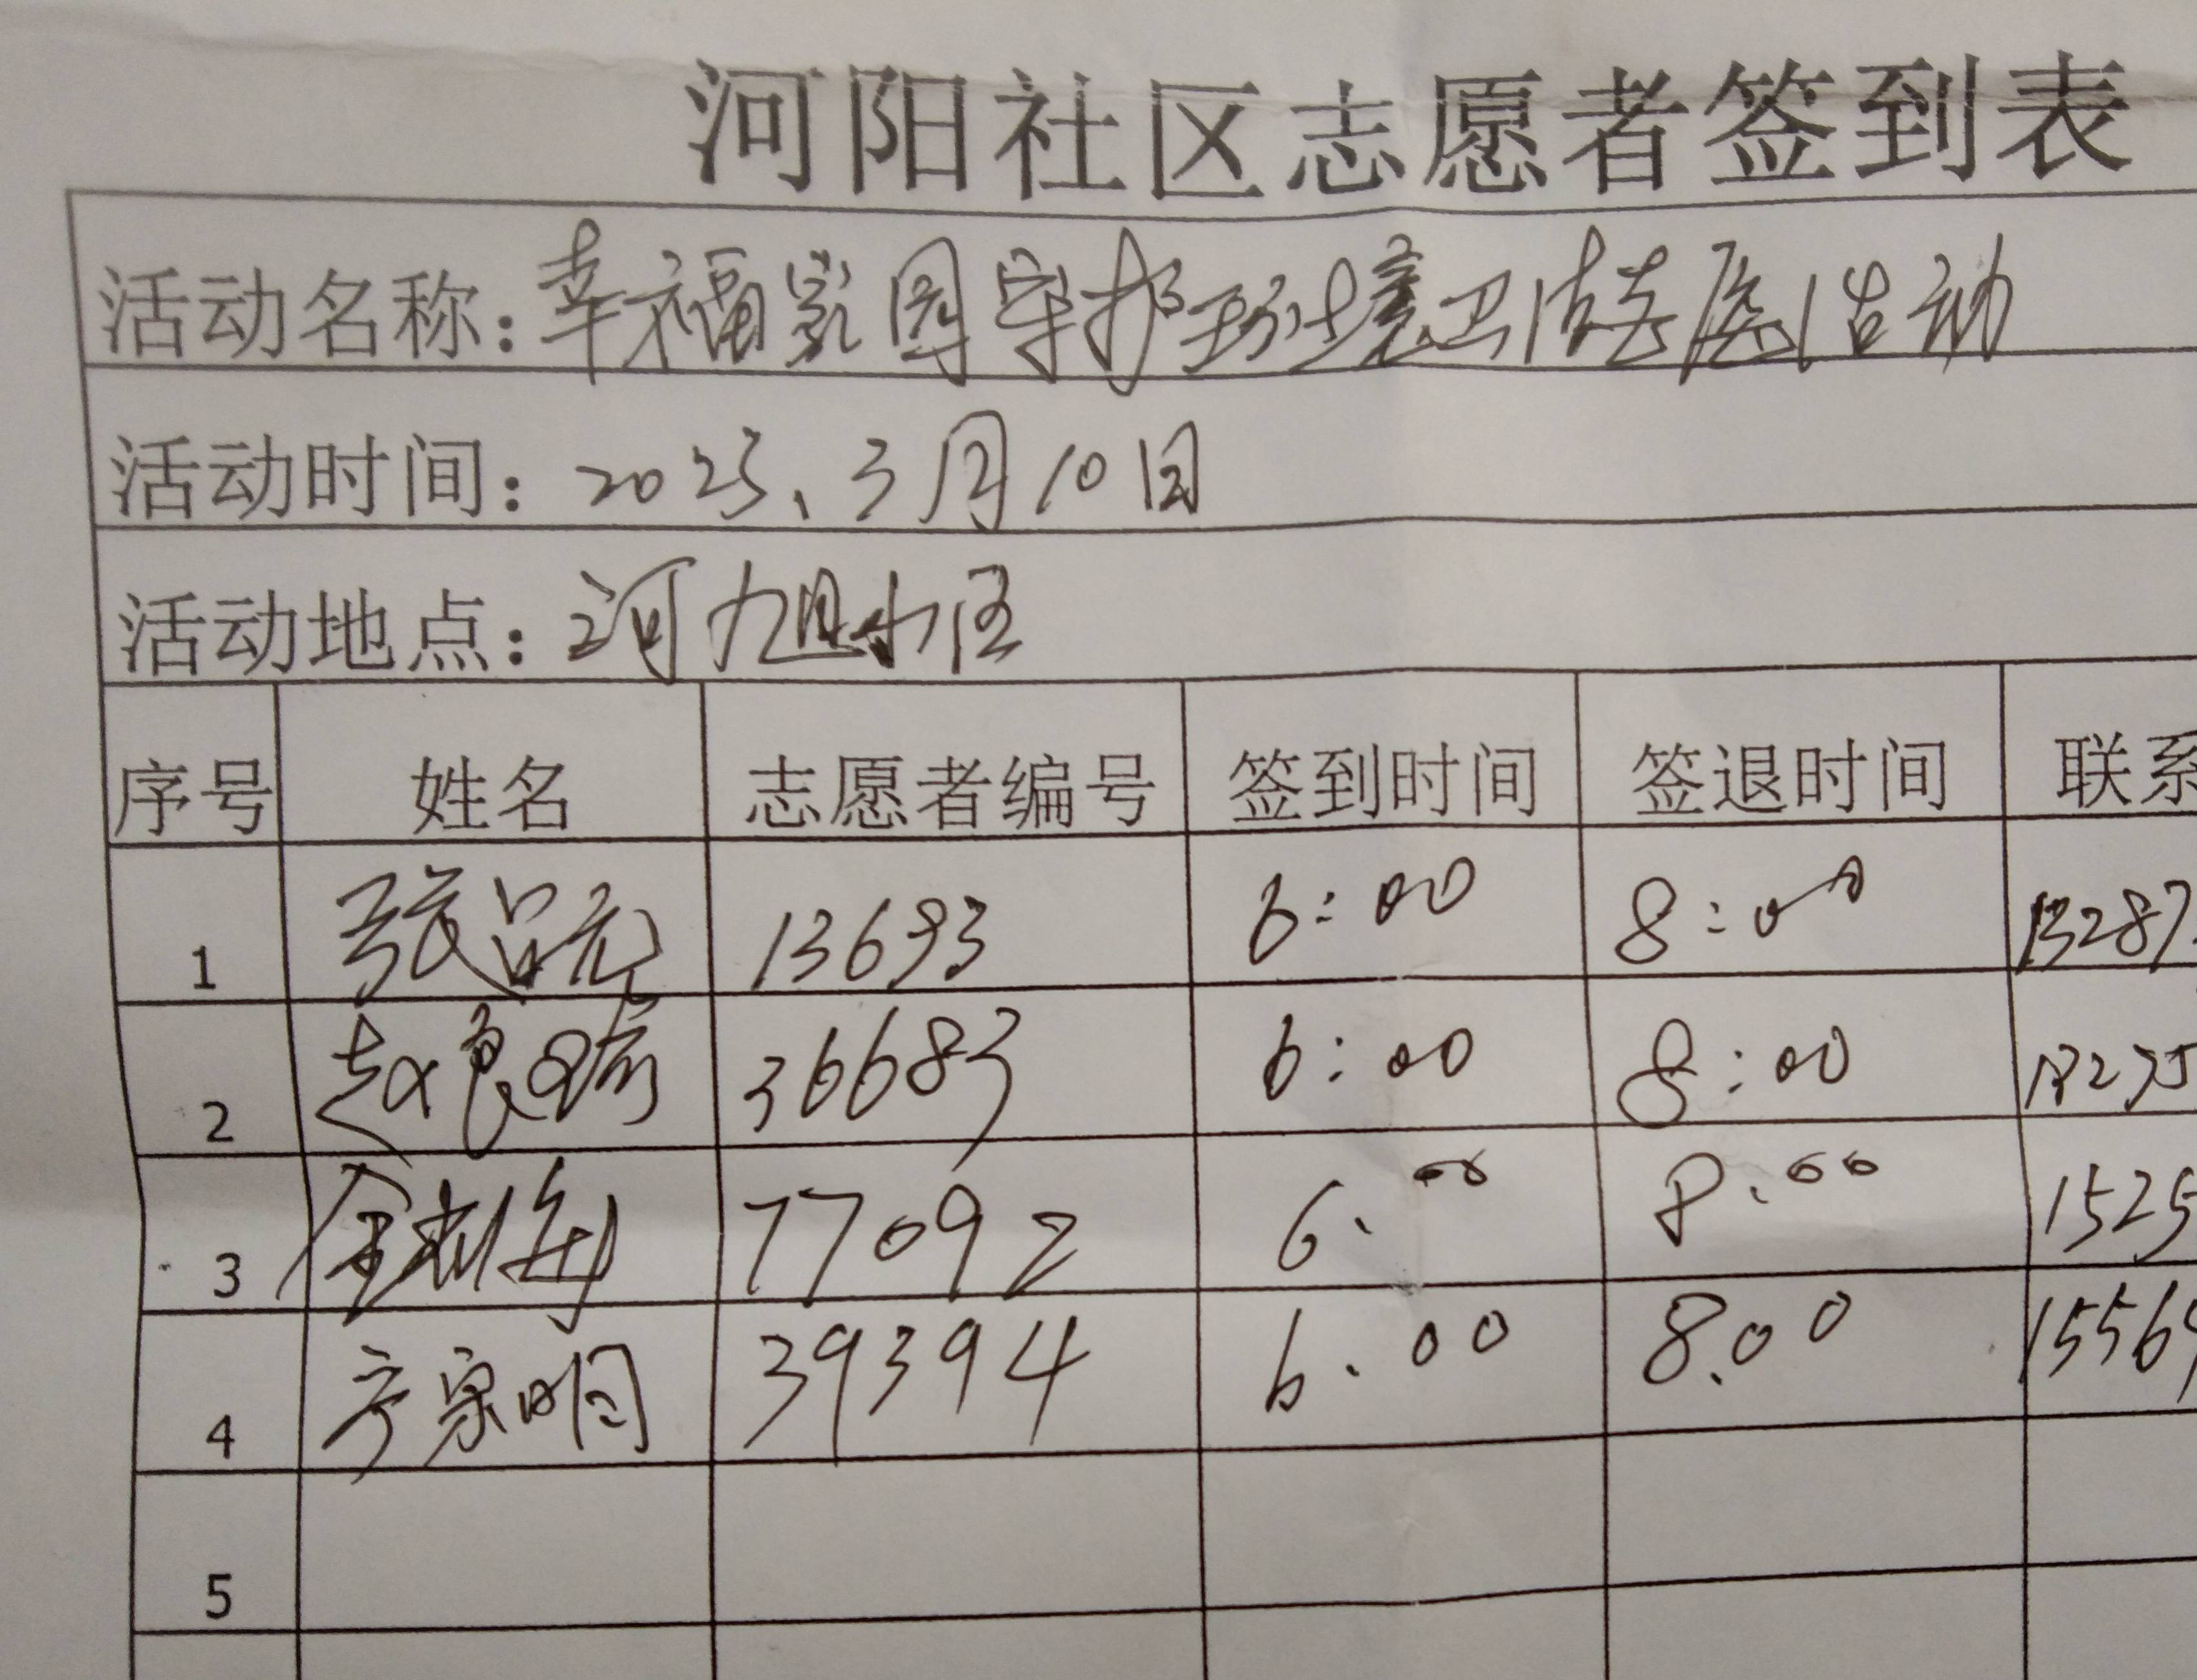 河阳社区志愿者签到表
活动名称：幸福家园守护环境卫清志愿活动
活动时间：2025、3月10日
活动地点：河旭小区
序号 姓名 志愿者编号 签到时间 签退时间 联系
1 张 13693 6:00 8:00 13287
2 赵 36683 6:00 8:00
3 金 77092 6.00 8.00 1525
4 宗明 39394 6.00 8.00 15569
5